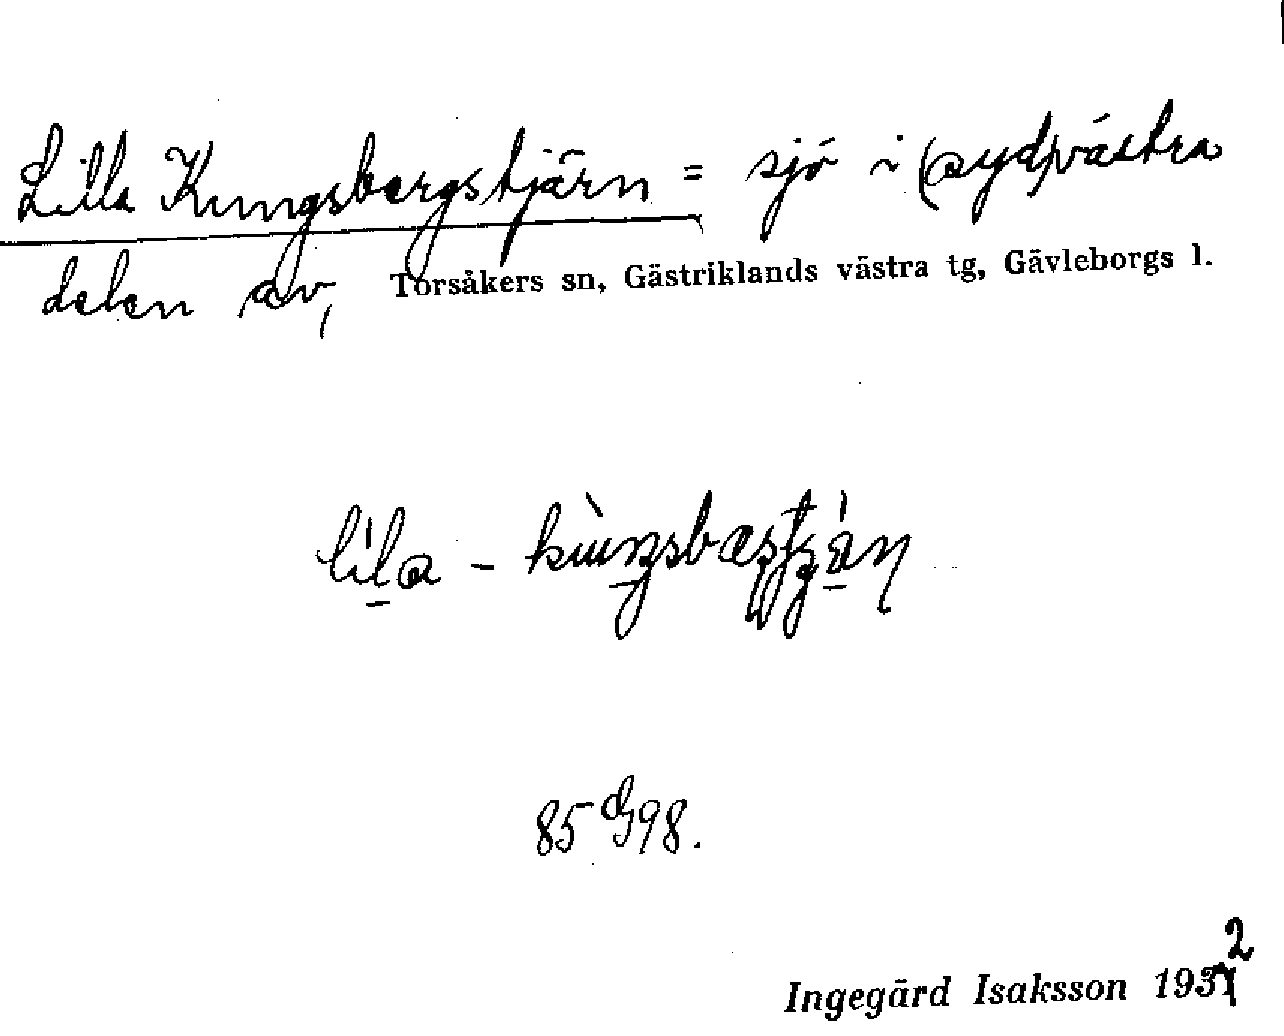 Lilla Kungsbergstjärn = sjö i (syd)västra
delen av, Torsåkers sn, Gästriklands västra tg, Gävleborgs l.
85 d 98.
Ingegärd Isaksson 1932